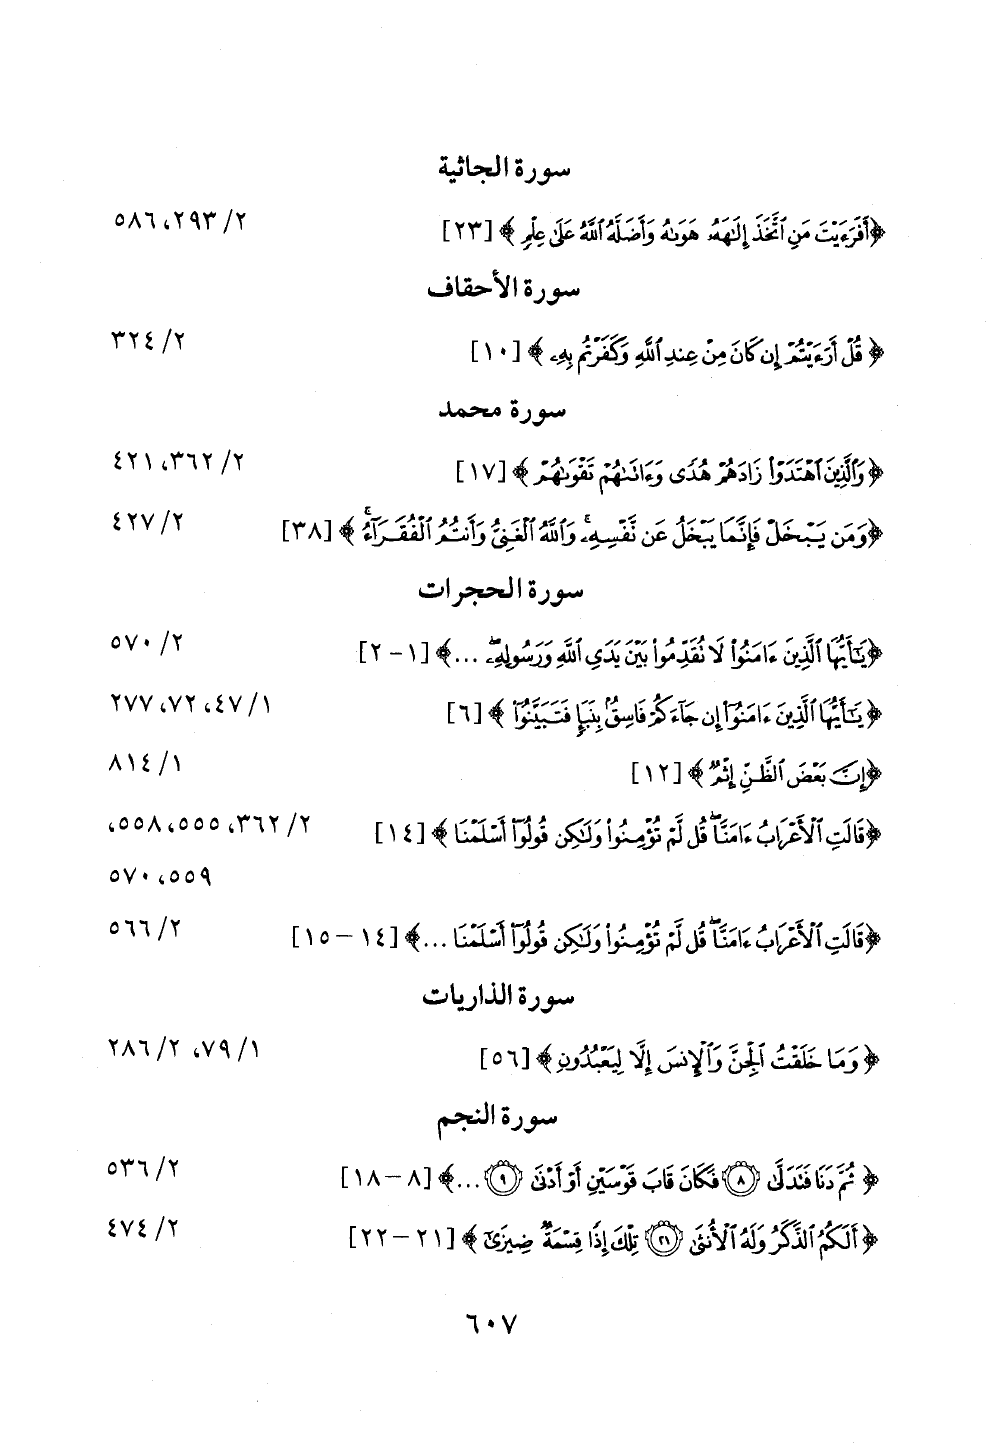 سورة الجاثية
﴿أَفَرَءَيْتَ مَنِ ٱتَّخَذَ إِلَٰهَهُۥ هَوَىٰهُ وَأَضَلَّهُ ٱللَّهُ عَلَىٰ عِلْمٍ﴾ [٢٣] ٢/ ٢٩٣، ٥٨٦
سورة الأحقاف
﴿قُلْ أَرَءَيْتُمْ إِن كَانَ مِنْ عِندِ ٱللَّهِ وَكَفَرْتُم بِهِۦ﴾ [١٠] ٢/ ٣٢٤
سورة محمد
﴿وَٱلَّذِينَ ٱهْتَدَوْا۟ زَادَهُمْ هُدًى وَءَاتَىٰهُمْ تَقْوَىٰهُمْ﴾ [١٧] ٢/ ٣٦٢، ٤٢١
﴿وَمَن يَبْخَلْ فَإِنَّمَا يَبْخَلُ عَن نَّفْسِهِۦ ۚ وَٱللَّهُ ٱلْغَنِىُّ وَأَنتُمُ ٱلْفُقَرَآءُ ۚ﴾ [٣٨] ٢/ ٤٢٧
سورة الحجرات
﴿يَٰٓأَيُّهَا ٱلَّذِينَ ءَامَنُوا۟ لَا تُقَدِّمُوا۟ بَيْنَ يَدَىِ ٱللَّهِ وَرَسُولِهِۦ ۖ ...﴾ [١-٢] ٢/ ٥٧٠
﴿يَٰٓأَيُّهَا ٱلَّذِينَ ءَامَنُوٓا۟ إِن جَآءَكُمْ فَاسِقٌۢ بِنَبَإٍ فَتَبَيَّنُوٓا۟﴾ [٦] ١/ ٤٧، ٧٢، ٢٧٧
﴿إِنَّ بَعْضَ ٱلظَّنِّ إِثْمٌ ۖ﴾ [١٢] ١/ ٨١٤
﴿قَالَتِ ٱلْأَعْرَابُ ءَامَنَّا ۖ قُل لَّمْ تُؤْمِنُوا۟ وَلَٰكِن قُولُوٓا۟ أَسْلَمْنَا﴾ [١٤] ٢/ ٣٦٢، ٥٥٥، ٥٥٨،
٥٥٩، ٥٧٠
﴿قَالَتِ ٱلْأَعْرَابُ ءَامَنَّا ۖ قُل لَّمْ تُؤْمِنُوا۟ وَلَٰكِن قُولُوٓا۟ أَسْلَمْنَا ...﴾ [١٤-١٥] ٢/ ٥٦٦
سورة الذاريات
﴿وَمَا خَلَقْتُ ٱلْجِنَّ وَٱلْإِنسَ إِلَّا لِيَعْبُدُونِ﴾ [٥٦] ١/ ٧٩، ٢/ ٢٨٦
سورة النجم
﴿ثُمَّ دَنَا فَتَدَلَّىٰ ٨ فَكَانَ قَابَ قَوْسَيْنِ أَوْ أَدْنَىٰ ٩ ...﴾ [٨-١٨] ٢/ ٥٣٦
﴿أَلَكُمُ ٱلذَّكَرُ وَلَهُ ٱلْأُنثَىٰ ٢١ تِلْكَ إِذًا قِسْمَةٌ ضِيزَىٰٓ﴾ [٢١-٢٢] ٢/ ٤٧٤
٦٠٧